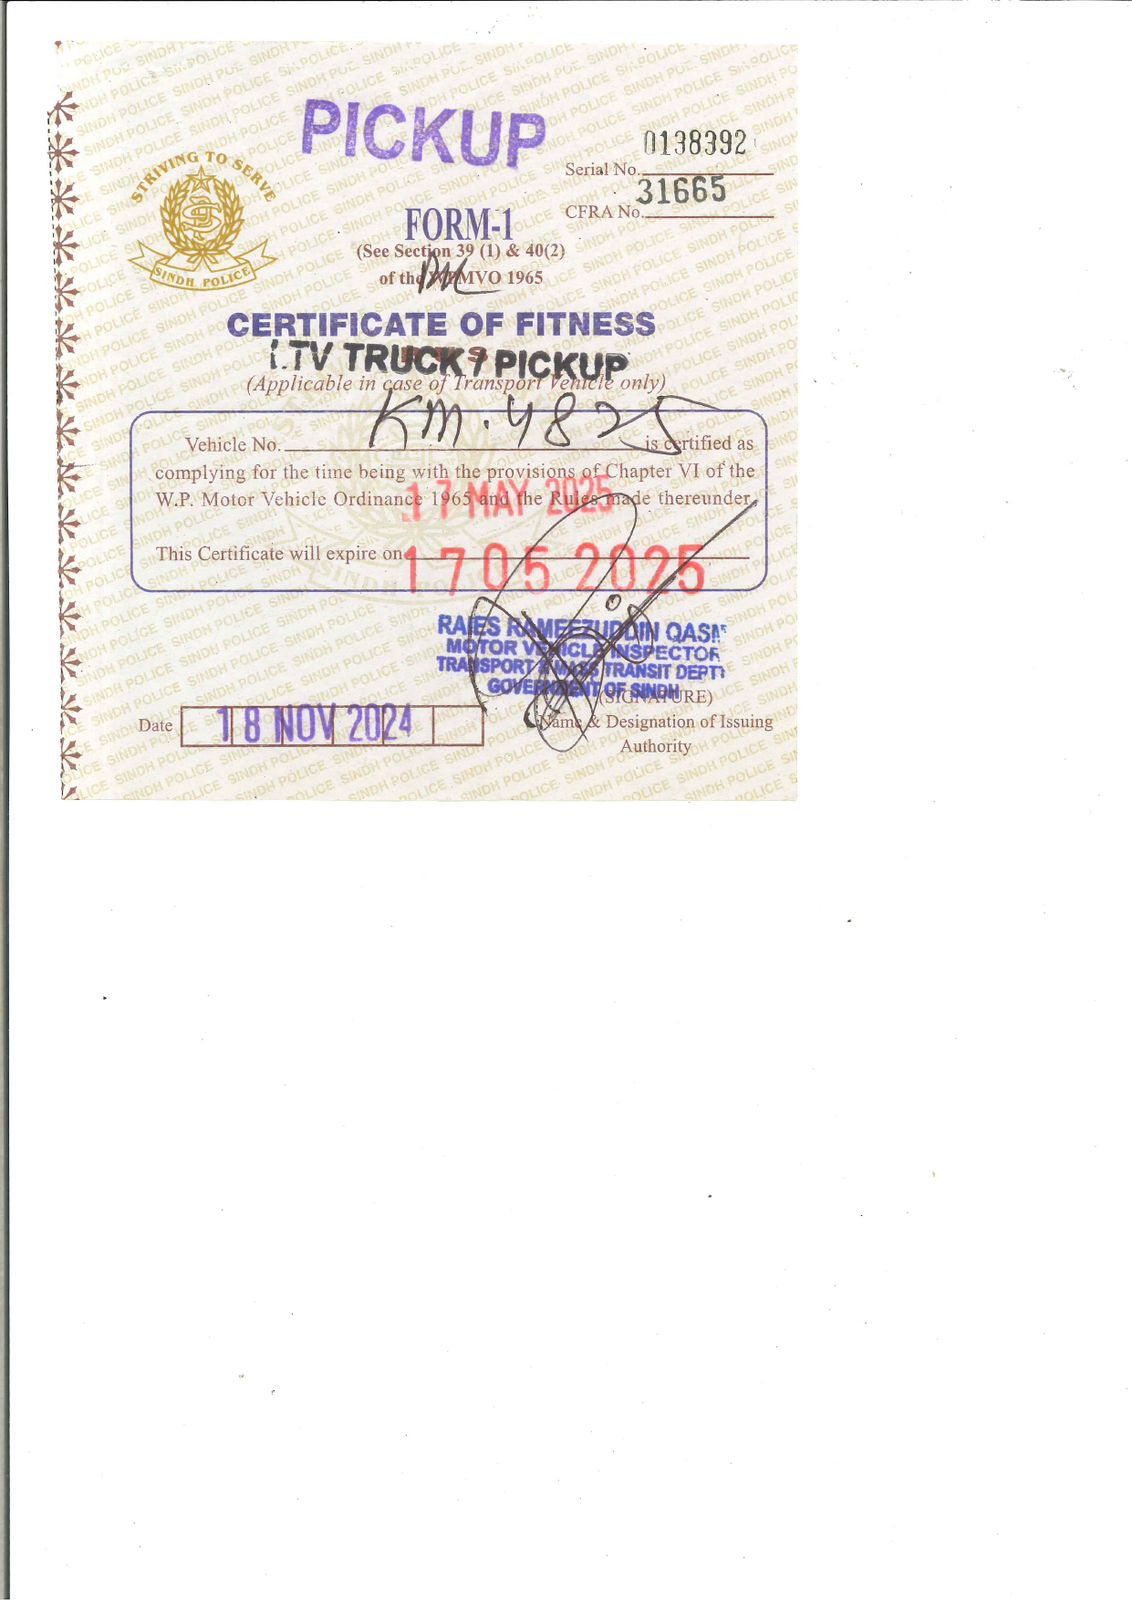 PICKUP
0138392
Serial No.
31665
CFRA No.
STRIVING TO SERVE
SINDH POLICE
FORM-1
(See Section 39 (1) & 40(2)
of the MVO 1965
CERTIFICATE OF FITNESS
LTV TRUCK / PICKUP
(Applicable in case of Transport Vehicle only)
Vehicle No. KM. 4825 is certified as
complying for the time being with the provisions of Chapter VI of the
W.P. Motor Vehicle Ordinance 1965 and the Rules made thereunder.
17 MAY 2025
This Certificate will expire on 17 05 2025
RAIES RAMEEZUDDIN QASM
MOTOR VEHICLE INSPECTOR
TRANSPORT & MASS TRANSIT DEPTT
GOVERNMENT OF SINDH
(SIGNATURE)
Date 18 NOV 2024
Name & Designation of Issuing
Authority